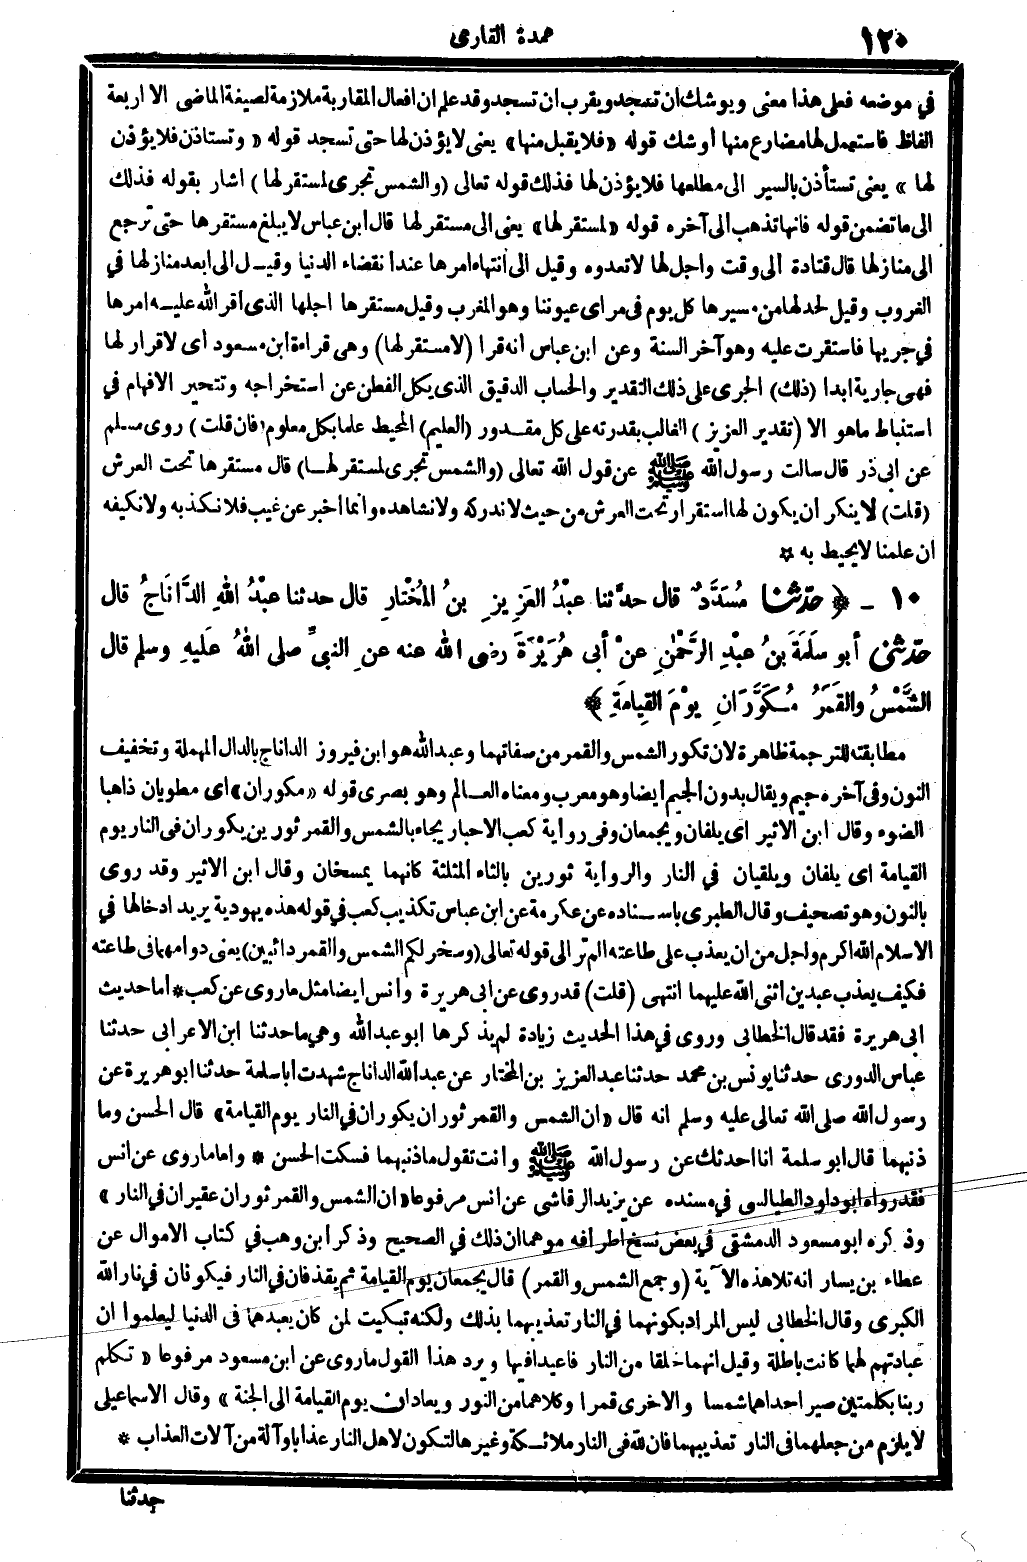 ١٢٠
عمدة القارى
في موضعه فعلى هذا معنى ويوشك ان تسجد ويقرب ان تسجد وقد علم ان افعال المقاربة ملازمة لصيغة الماضى الا اربعة
الفاظ فاستعمل لها مضارع منها أوشك قوله «فلا يقبل منها» يعنى لا يؤذن لها حتى تسجد قوله « وتستاذن فلا يؤذن
لها » يعنى تستأذن بالسير الى مطلعها فلا يؤذن لها فذلك قوله تعالى (والشمس تجرى لمستقر لها) اشار بقوله فذلك
الى ما تضمن قوله فانها تذهب الى آخره قوله «لمستقر لها» يعنى الى مستقر لها قال ابن عباس لا يبلغ مستقرها حتى ترجع
الى منازلها قال قتادة الى وقت واجل لها لا تعدوه وقيل الى انتهاء امرها عند انقضاء الدنيا وقيل الى ابعد منازلها في
الغروب وقيل لحد لها من مسيرها كل يوم فى مراى عيوننا وهو المغرب وقيل مستقرها اجلها الذى اقر الله عليه امرها
في جريها فاستقرت عليه وهو آخر السنة وعن ابن عباس انه قرا (لا مستقر لها) وهى قراءة ابن مسعود أى لا قرار لها
فهى جارية ابدا (ذلك) الجرى على ذلك التقدير والحساب الدقيق الذى يكل الفطن عن استخراجه وتتحير الافهام في
استنباط ماهو الا (تقدير العزيز) الغالب بقدرته على كل مقدور (العليم) المحيط علما بكل معلوم (فان قلت) روى مسلم
عن ابى ذر قال سالت رسول الله ﷺ عن قول الله تعالى (والشمس تجرى لمستقر لها) قال مستقرها تحت العرش
(قلت) لا ينكر أن يكون لها استقرار تحت العرش من حيث لا ندركه ولا نشاهده وانما أخبر عن غيب فلا نكذبه ولا نكيفه
ان علمنا لا يحيط به ✡
١٠ - ﴿ حَدَّثَنَا مُسَدَّدٌ قال حدَّثنا عبْدُ العَزِيزِ بنُ المُخْتَارِ قال حدثنا عبْدُ اللهِ الدَّانَاجُ قال
حَدَّثَنِي أبو سلَمَةَ بنُ عبْدِ الرَّحْمٰنِ عنْ أبى هُرَيْرَةَ رضى الله عنه عنِ النبيِّ صلى اللهُ عَليهِ وسلم قال
الشَّمْسُ والقَمَرُ مُكَوَّرَانِ يوْمَ القِيامَةِ ﴾
مطابقته للترجمة ظاهرة لان تكور الشمس والقمر من صفاتهما وعبد الله هو ابن فيروز الداناج بالدال المهملة وتخفيف
النون وفى آخره جيم ويقال بدون الجيم ايضا وهو معرب ومعناه العالم وهو بصرى قوله «مكوران» اى مطويان ذاهبا
الضوء وقال ابن الاثير اى يلفان ويجمعان وفى رواية كعب الاحبار يجاء بالشمس والقمر ثورين يكوران فى النار يوم
القيامة اى يلفان ويلقيان في النار والرواية ثورين بالثاء المثلثة كانهما يمسخان وقال ابن الاثير وقد روى
بالنون وهو تصحيف وقال الطبرى باسناده عن عكرمة عن ابن عباس تكذيب كعب في قوله هذه يهودية يريد ادخالها في
الاسلام الله اكرم واجل من ان يعذب على طاعته الم تر الى قوله تعالى (وسخر لكم الشمس والقمر دائبين) يعنى دوامهما فى طاعته
فكيف يعذب عبدين اثنى الله عليهما انتهى (قلت) قد روى عن ابى هريرة وأنس ايضا مثل ما روى عن كعب* أما حديث
ابى هريرة فقد قال الخطابى وروى في هذا الحديث زيادة لم يذكرها ابو عبد الله وهي ما حدثنا ابن الاعرابى حدثنا
عباس الدورى حدثنا يونس بن محمد حدثنا عبد العزيز بن المختار عن عبد الله الداناج شهدت أبا سلمة حدثنا أبو هريرة عن
رسول الله صلى الله تعالى عليه وسلم انه قال «ان الشمس والقمر ثوران يكوران في النار يوم القيامة» قال الحسن وما
ذنبهما قال ابو سلمة انا احدثك عن رسول الله ﷺ وانت تقول ما ذنبهما فسكت الحسن * واما ما روى عن انس
فقد رواه ابو داود الطيالسى في مسنده عن يزيد الرقاشى عن انس مرفوعا «ان الشمس والقمر ثوران عقيران في النار»
وذكره ابو مسعود الدمشقى في بعض نسخ اطرافه موهما ان ذلك في الصحيح وذكر ابن وهب في كتاب الاموال عن
عطاء بن يسار انه تلا هذه الآية (وجمع الشمس والقمر) قال يجمعان يوم القيامة ثم يقذفان في النار فيكونان في نار الله
الكبرى وقال الخطابى ليس المراد بكونهما في النار تعذيبهما بذلك ولكنه تبكيت لمن كان يعبدهما فى الدنيا ليعلموا ان
عبادتهم لهما كانت باطلة وقيل انهما خلقا من النار فاعيدا فيها ويرد هذا القول ما روى عن ابن مسعود مرفوعا « تكلم
ربنا بكلمتين صير احداهما شمسا والاخرى قمرا وكلاهما من النور ويعادان يوم القيامة الى الجنة » وقال الاسماعيلى
لا يلزم من جعلهما فى النار تعذيبهما فان لله فى النار ملائكة وغيرها لتكون لاهل النار عذابا وآلة من آلات العذاب *
حدثنا